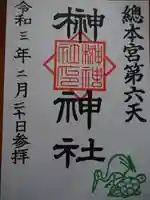 總本宮第六天
榊神社
令和三年二月二十日参拜